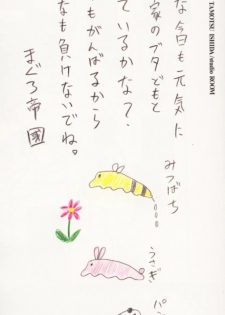 TAMOTSU ISHIDA/studio ROOM
な今日も元気に
家のブタどもと
ているかな?、
もがんばるから
なも負けないでね。
まぐろ帝國
みつばち
うさぎ
パン